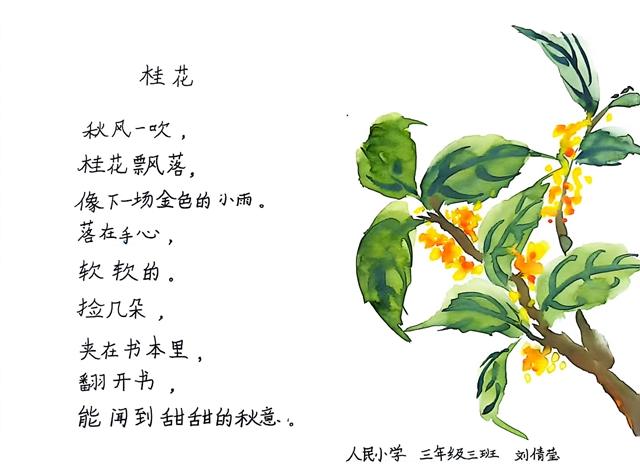 桂花
秋风一吹，
桂花飘落，
像下一场金色的小雨。
落在手心，
软软的。
捡几朵，
夹在书本里，
翻开书，
能闻到甜甜的秋意。
人民小学 三年级三班 刘倩莹